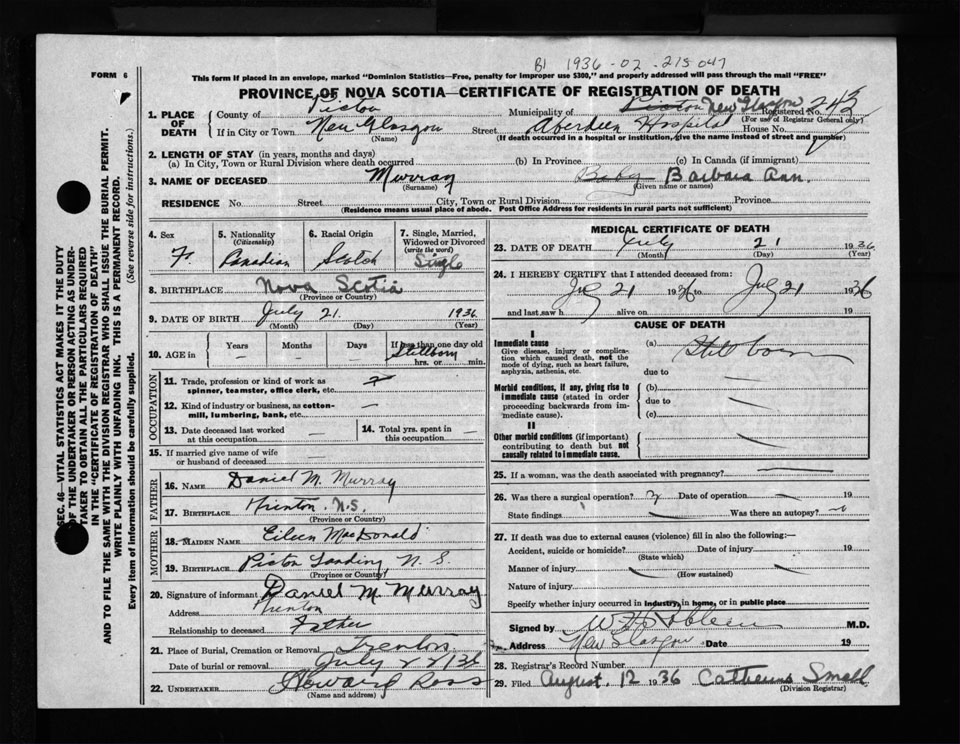 B1 1936-02-215047
FORM 6
This form if placed in an envelope, marked "Dominion Statistics—Free, penalty for improper use $300," and properly addressed will pass through the mail "FREE"
PROVINCE OF NOVA SCOTIA—CERTIFICATE OF REGISTRATION OF DEATH
1. PLACE OF DEATH
County of Pictou Municipality of Pictou New Glasgow Registered No. 243
(For use of Registrar General only)
If in City or Town New Glasgow Street Aberdeen Hospital House No.
(Name) (If death occurred in a hospital or institution, give the name instead of street and number)
2. LENGTH OF STAY (in years, months and days)
(a) In City, Town or Rural Division where death occurred (b) In Province (c) In Canada (if immigrant)
3. NAME OF DECEASED Murray Baby Barbara Ann.
(Surname) (Given name or names)
RESIDENCE No. Street City, Town or Rural Division Province
(Residence means usual place of abode. Post Office Address for residents in rural parts not sufficient)
4. Sex F.
5. Nationality (Citizenship) Canadian
6. Racial Origin Scotch
7. Single, Married, Widowed or Divorced (write the word) Single
8. BIRTHPLACE Nova Scotia
(Province or Country)
9. DATE OF BIRTH July 21. 1936
(Month) (Day) (Year)
10. AGE in Years Months Days If less than one day old
— — — Stillborn
hrs. or min.
OCCUPATION
11. Trade, profession or kind of work as spinner, teamster, office clerk, etc.
12. Kind of industry or business, as cotton-mill, lumbering, bank, etc. —
13. Date deceased last worked at this occupation —
14. Total yrs. spent in this occupation —
15. If married give name of wife or husband of deceased —
FATHER
16. NAME Daniel M. Murray
17. BIRTHPLACE Trenton. N.S.
(Province or Country)
MOTHER
18. MAIDEN NAME Eileen MacDonald
19. BIRTHPLACE Pictou Landing N.S.
(Province or Country)
20. Signature of informant Daniel M. Murray
Address Trenton
Relationship to deceased Father
21. Place of Burial, Cremation or Removal Trenton
Date of burial or removal July 22/36
22. UNDERTAKER Howard Ross
(Name and address)
MEDICAL CERTIFICATE OF DEATH
23. DATE OF DEATH July 21 1936
(Month) (Day) (Year)
24. I HEREBY CERTIFY that I attended deceased from:
July 21 1936 to July 21 1936
and last saw h alive on 19
CAUSE OF DEATH
I
Immediate cause
Give disease, injury or complication which caused death, not the mode of dying, such as heart failure, asphyxia, asthenia, etc.
(a) Stillborn
due to
Morbid conditions, if any, giving rise to immediate cause (stated in order proceeding backwards from immediate cause).
(b)
due to
(c)
II
Other morbid conditions (if important) contributing to death but not causally related to immediate cause.
25. If a woman, was the death associated with pregnancy?
26. Was there a surgical operation? Date of operation 19
State findings Was there an autopsy?
27. If death was due to external causes (violence) fill in also the following:—
Accident, suicide or homicide? Date of injury 19
(State which)
Manner of injury
(How sustained)
Nature of injury
Specify whether injury occurred in industry, in home, or in public place
Signed by M.D.
Address New Glasgow Date 19
28. Registrar's Record Number
29. Filed August. 12 1936 Catherine Small
(Division Registrar)
SEC. 46—VITAL STATISTICS ACT MAKES IT THE DUTY
OF THE UNDERTAKER OR PERSON ACTING AS UNDER-
TAKER TO OBTAIN ALL THE PARTICULARS REQUIRED
IN THE "CERTIFICATE OF REGISTRATION OF DEATH"
AND TO FILE THE SAME WITH THE DIVISION REGISTRAR WHO SHALL ISSUE THE BURIAL PERMIT.
WRITE PLAINLY WITH UNFADING INK. THIS IS A PERMANENT RECORD.
Every item of information should be carefully supplied. (See reverse side for instructions.)